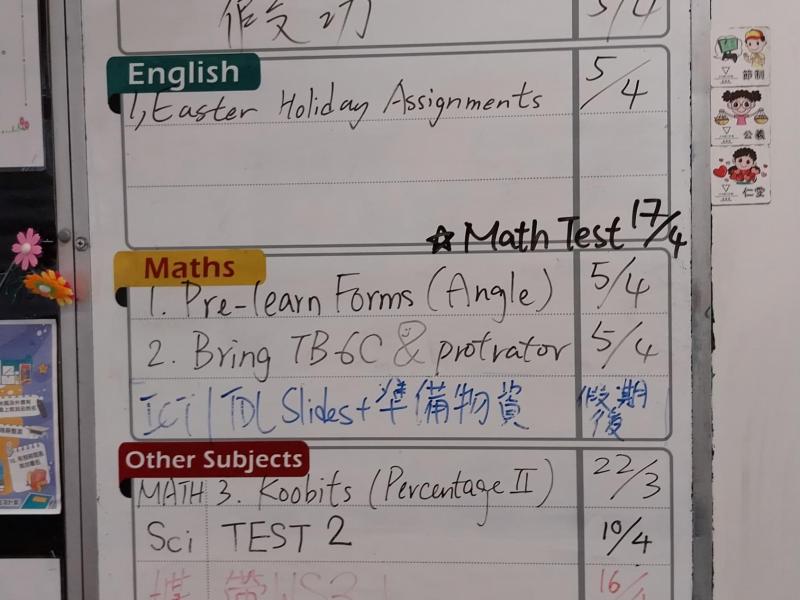 假反功 5/4
English
1, Easter Holiday Assignments 5/4
☆ Math Test 17/4
Maths
1. Pre-learn Forms (Angle) 5/4
2. Bring TB6C & protrator 5/4
ICT/TDL Slides+準備物資 假期後
Other Subjects
MATH 3. Koobits (Percentage II) 22/3
Sci TEST 2 10/4
帶WS3 16/
節制
公義
仁愛